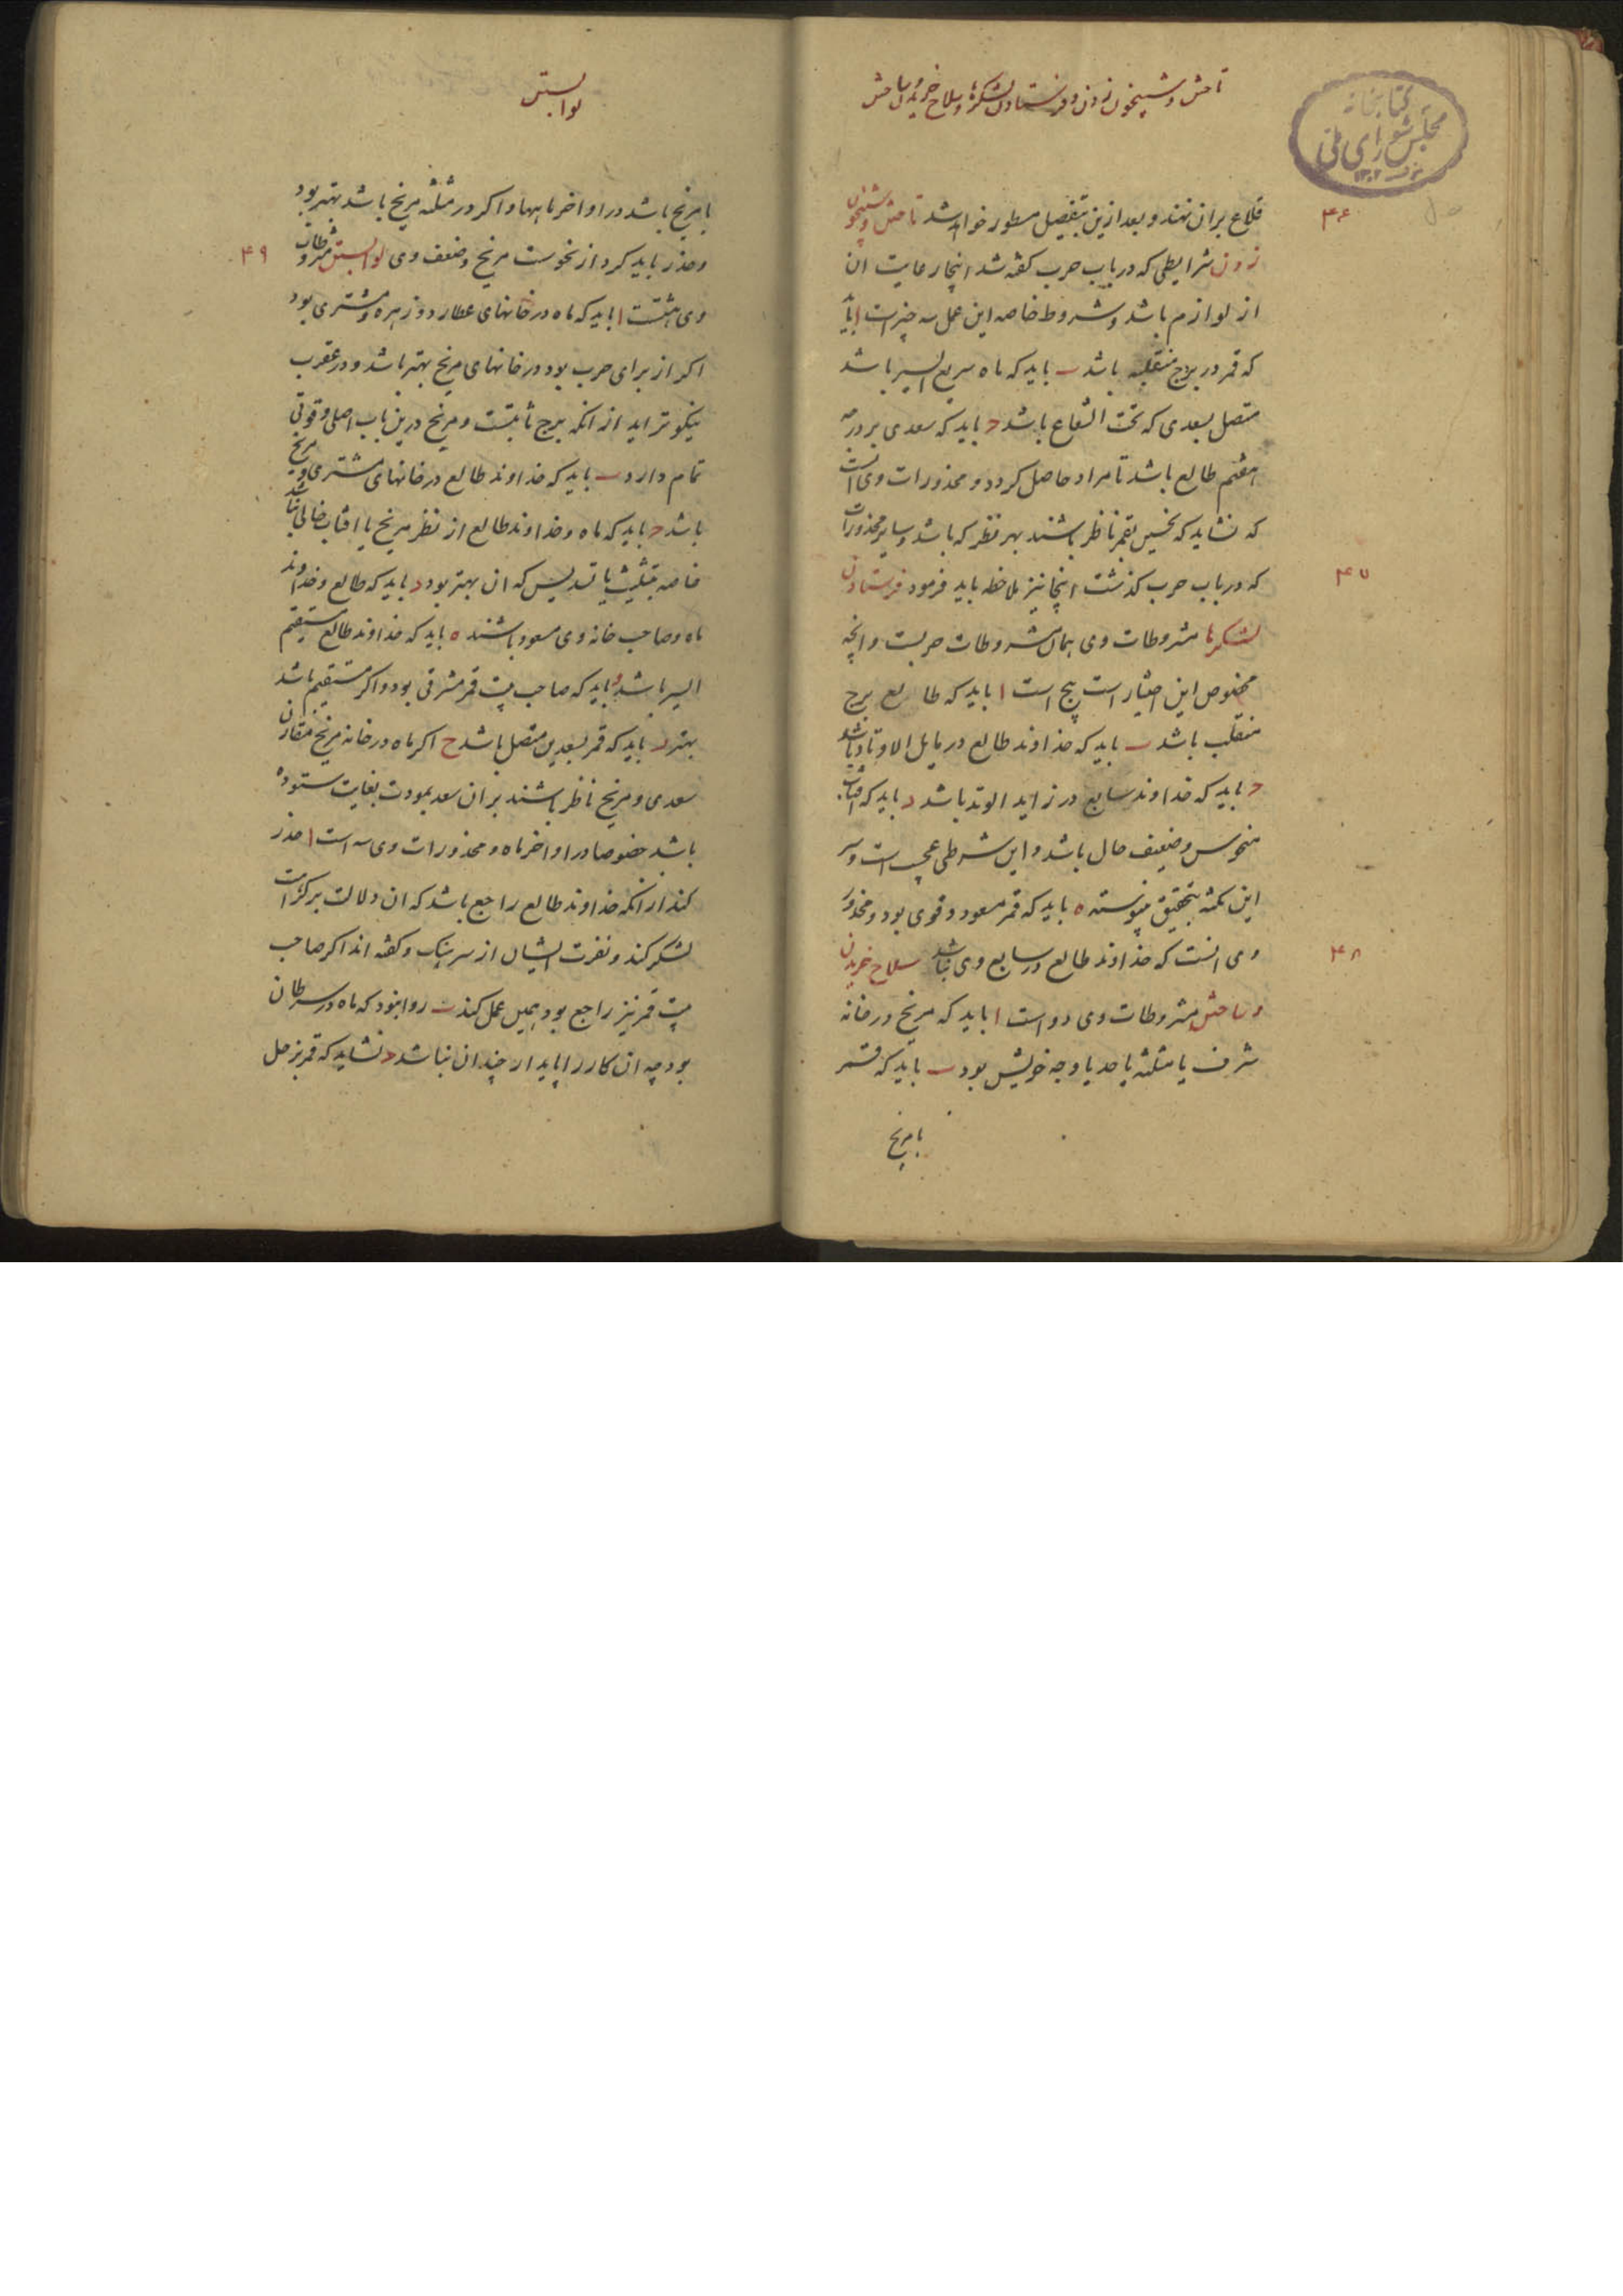 تاختن و شبیخون زدن و فرستادن لشکرها و سلاح خریدن و ساختن
کتابخانه
مجلس شورای ملی
۴۶
قلاع بران نهند و بعد ازین بتفصیل مسطور خواهد شد تاختن و شبیخون
زدن شرایطی که در باب حرب کفته شد اینجا رعایت ان
از لوازم باشد و شروط خاصه این عمل سه چیز است ا باید
که قمر در بروج منقلبه باشد ب باید که ماه سریع السیر باشد
متصل بسعدی که تحت الشعاع باشد ج باید که سعدی بر درجه
هفتم طالع باشد تا مراد حاصل کردد و محذورات وی انست
که نشاید که نحسین بقمر ناظر باشند بهر نظر که باشد و سایر محذورات
۴۷
که در باب حرب کذشت اینجا نیز ملاحظه باید فرمود فرستادن
لشکرها مشروطات وی همان مشروطات حربست و انچه
مخصوص این اختیار است پنج است ا باید که طالع برج
منقلب باشد ب باید که خداوند طالع در مایل الاوتاد باشد
ج باید که خداوند سابع در زاید الوتد باشد د باید که افتاب
منحوس و ضعیف حال باشد و این شرطی عجیب است و سر
این نکته بتحقیق پیوسته ه باید که قمر مسعود و قوی بود و محذور
۴۸
وی انست که خداوند طالع در سابع وی نباشد سلاح خریدن
و ساختن مشروطات وی دو است ا باید که مریخ در خانه
شرف یا مثلثه یا حد یا وجه خویش بود ب باید که قمر
با مریخ
لوا بستن
با مریخ باشد در اواخر ماهها و اکر در مثلثه مریخ باشد بهتر بود
۴۹
و حذر باید کرد از نحوست مریخ و ضعف وی لوا بستن مشروطات
وی هشتست ا باید که ماه در خانهای عطارد و زهره و مشتری بود
اکر از برای حرب بود در خانهای مریخ بهتر باشد و در عقرب
نیکوتر اید از انکه برج ثابتست و مریخ درین باب اصلی و قوتی
تمام دارد ب باید که خداوند طالع در خانهای مشتری و مریخ
باشد ج باید که ماه و خداوند طالع از نظر مریخ یا افتاب خالی نباشد
خاصه بتثلیث یا تسدیس که ان بهتر بود د باید که طالع و خداوند
ماه و صاحب خانه وی مسعود باشند ه باید که خداوند طالع مستقیم
السیر باشد و باید که صاحب بیت قمر مشرقی بود و اکر مستقیم باشد
بهتر ز باید که قمر بسعدین متصل باشد ح اکر ماه در خانه مریخ مقارن
سعدی و مریخ ناظر باشند بران سعد بمودت بغایت ستوده
باشد خصوصا در اواخر ماه و محذورات وی سه است ا حذر
کند از انکه خداوند طالع راجع باشد که ان دلالت بر کثرت
لشکر کند و نفرت ایشان از سرهنک و کفته اند اکر صاحب
بیت قمر نیز راجع بود همین عمل کند ب روا نبود که ماه در سرطان
بود چه ان کار را پایدار چندان نباشد ج نشاید که قمر بزحل